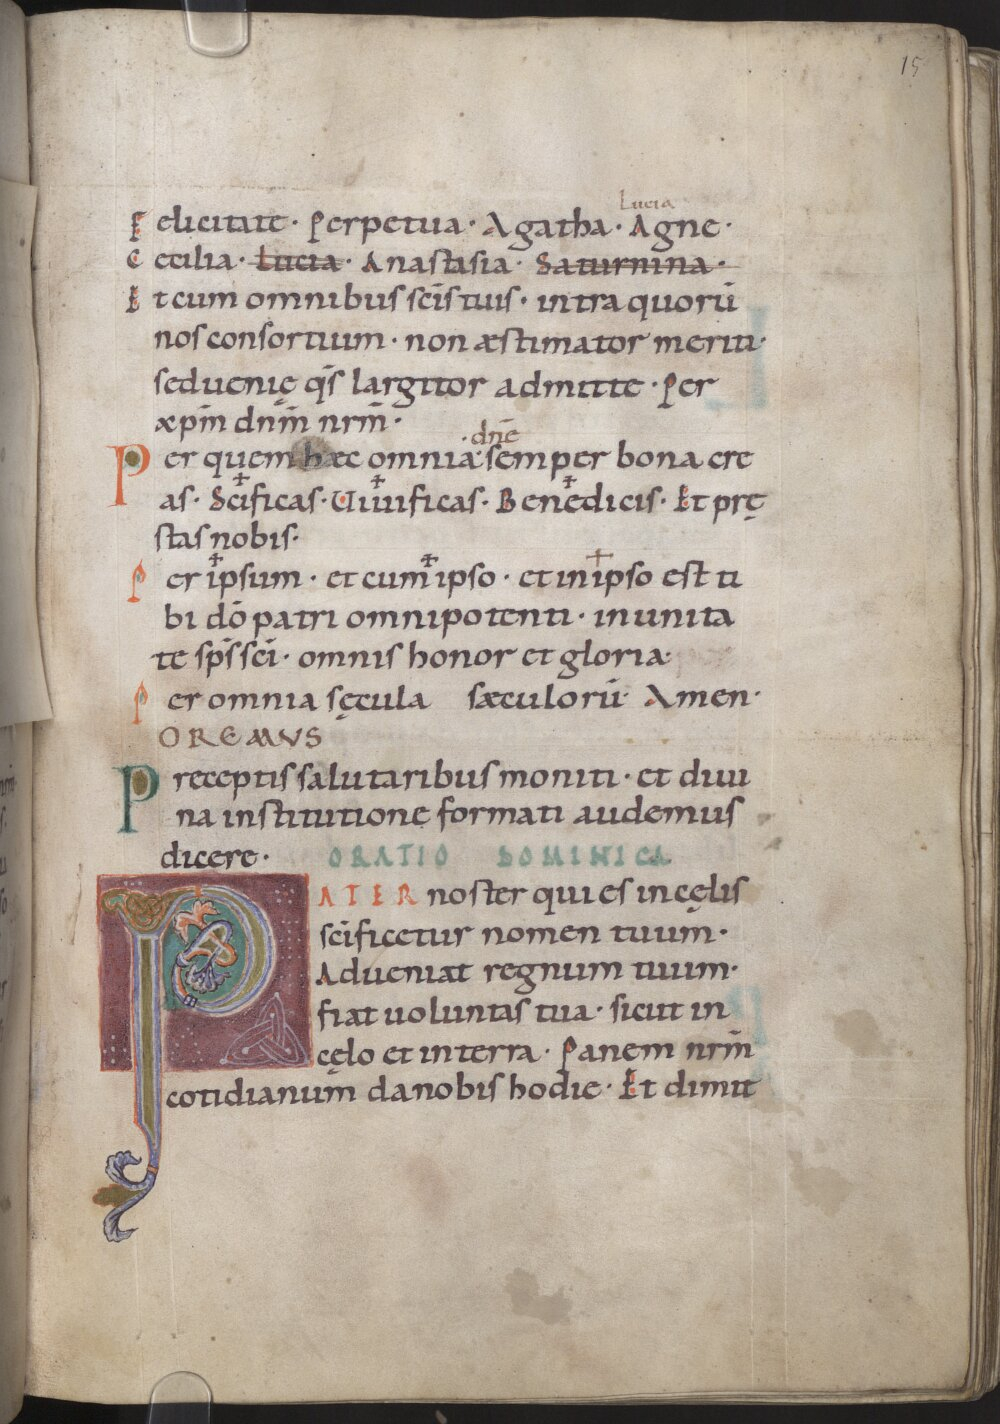 15
Lucia
Felicitate · Perpetua · Agatha · Agne ·
Cecilia · Lucia · Anastasia · Saturnina ·
Et cum omnibus scīs tuis · intra quorū
nos consortium · non æstimator meriti ·
sed uenię qs̄ largitor admitte · Per
xpm̄ dnm̄ nrm̄ ·
· dnē
Per quem hæc omnia · semper bona cre
as · Scīficas · Uiuificas · Benedicis · Et prę
stas nobis ·
Per ipsum · et cum ipso · et in ipso est ti
bi dō patri omnipotenti · in unita
te sps̄ scī · omnis honor et gloria ·
Per omnia sęcula sæculorū · Amen ·
OREMUS
Preceptis salutaribus moniti · et diui
na institutione formati audemus
dicere · ORATIO DOMINICA
PATER noster qui es in cęlis
scīficetur nomen tuum ·
Adueniat regnum tuum ·
fiat uoluntas tua · sicut in
cęlo et in terra · Panem nrm̄
cotidianum da nobis hodie · Et dimit